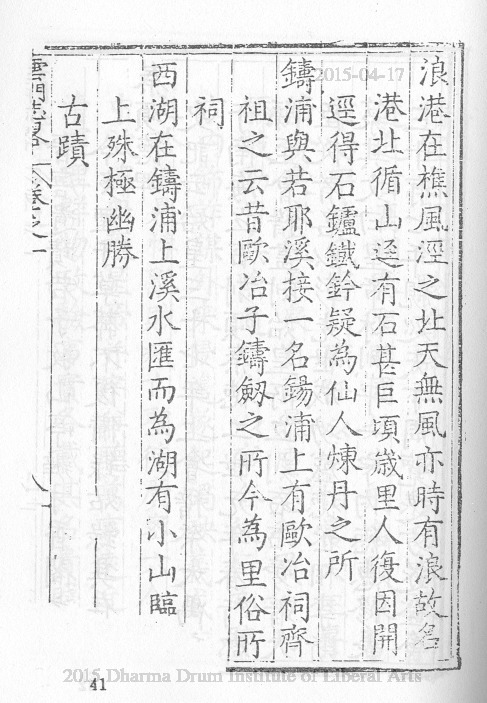 浪港在樵風涇之北天無風亦時有浪故名
港北循山迳有石甚巨頃歲里人復因開
逕得石鑪鐵鈐疑為仙人煉丹之所
鑄浦與若耶溪接一名錫浦上有歐冶祠齊
祖之云昔歐冶子鑄劒之所今為里俗所
祠
西湖在鑄浦上溪水匯而為湖有小山臨
上殊極幽勝
古蹟
雲門志畧 卷之一
2015-04-17
41
2015 Dharma Drum Institute of Liberal Arts